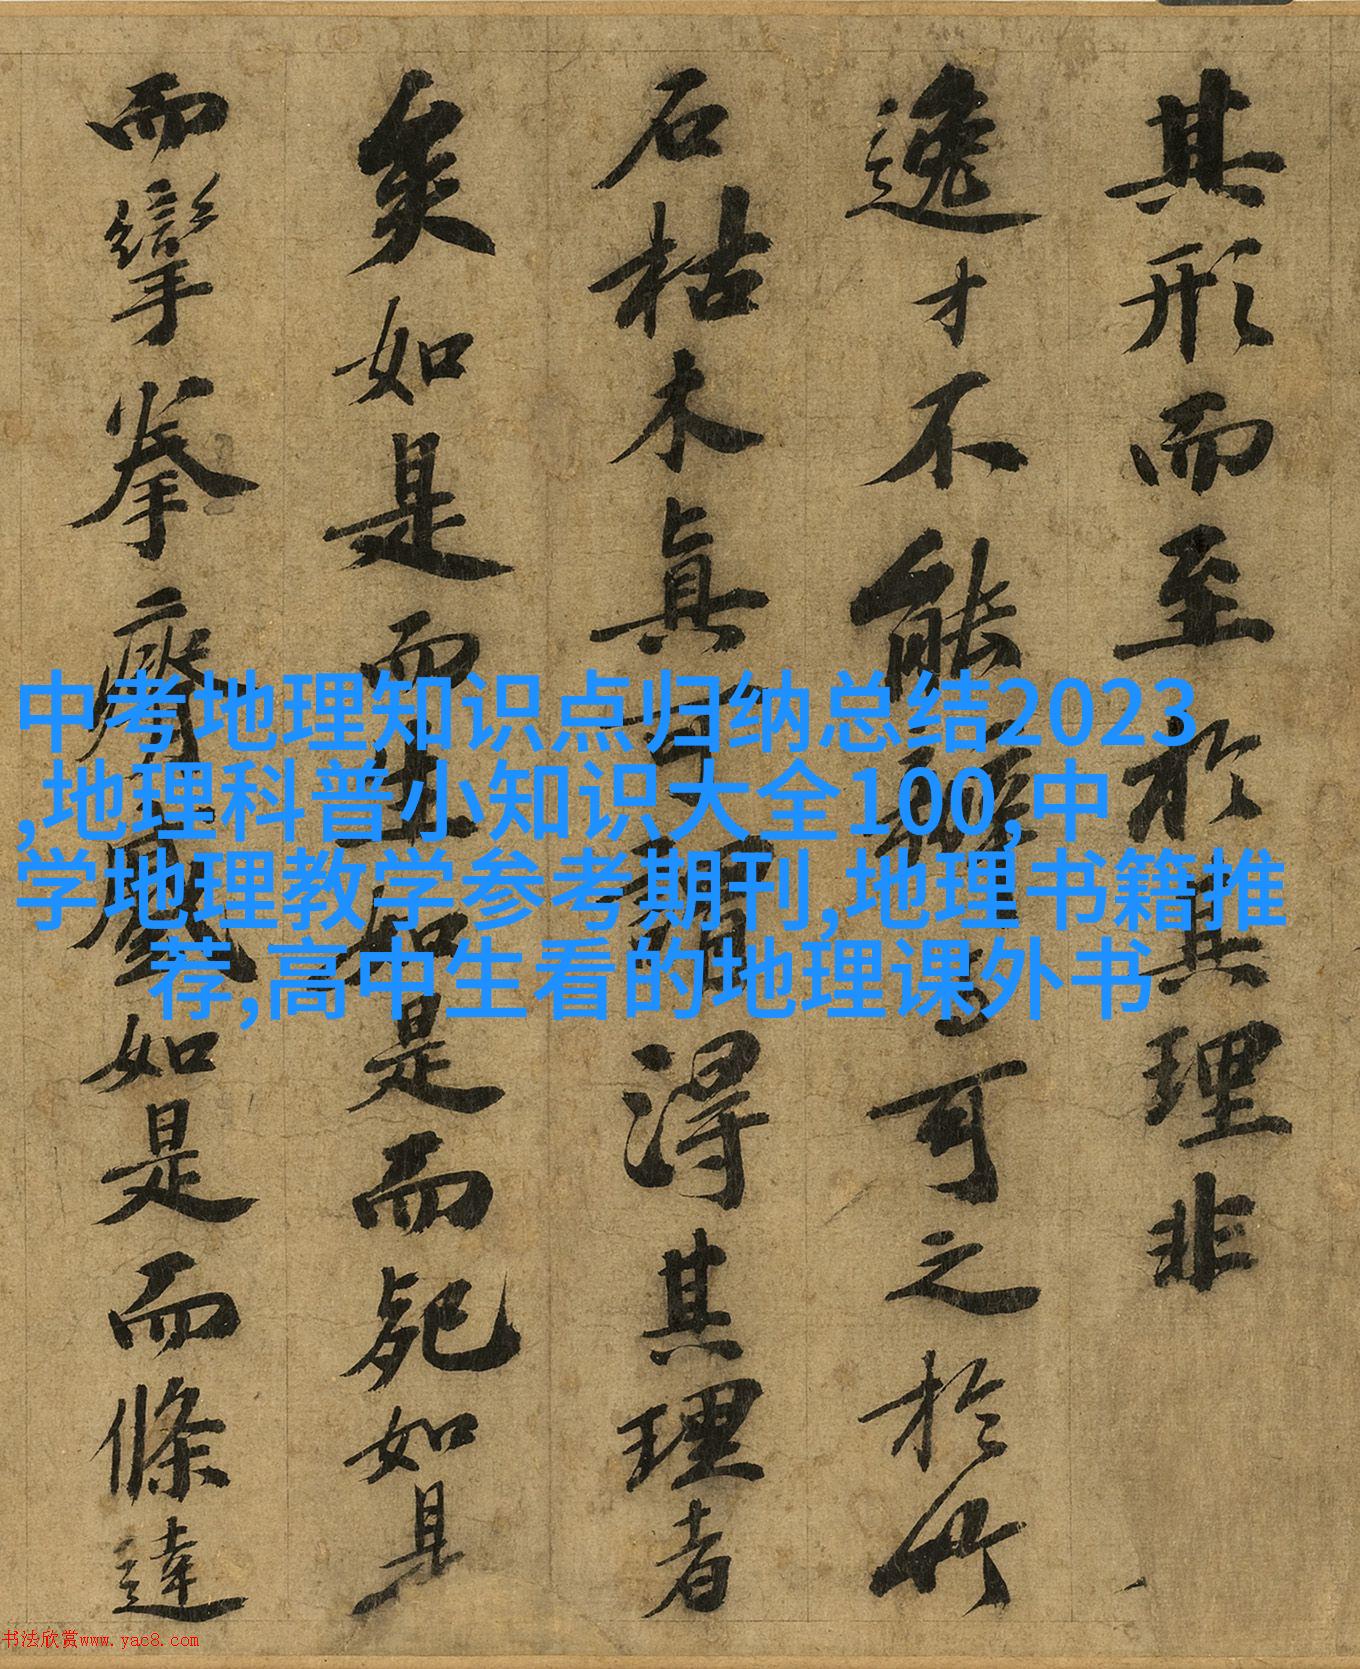 其形而至於其理非
逸才不能辨與可之於竹
石枯木真可謂得其理者
矣如是而生如是而死如是
而攣拳瘠蹙如是而條達
中考地理知识点归纳总结2023
,地理科普小知识大全100,中
学地理教学参考期刊,地理书籍推
荐,高中生看的地理课外书
书法欣赏www.yac8.com